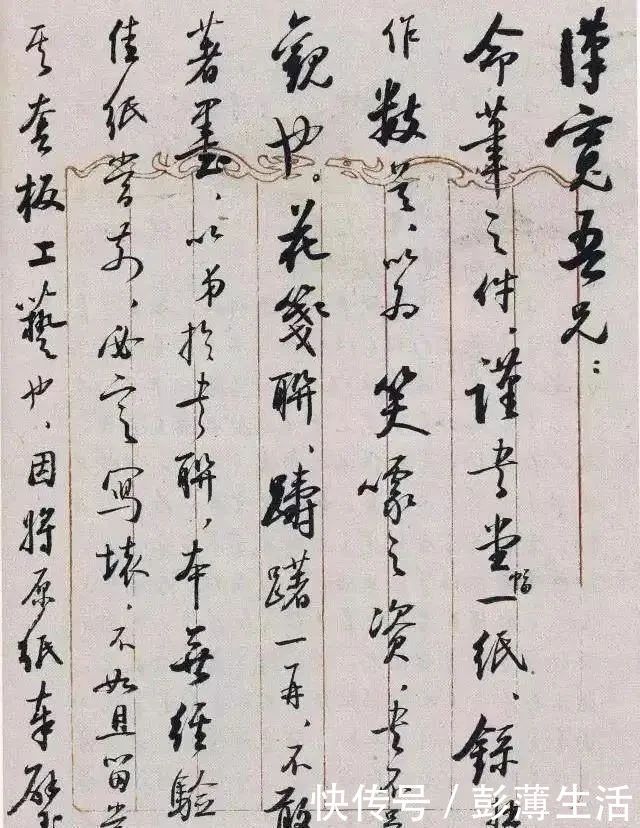 漢寬吾兄：
命筆之件，謹書堂幅一紙、錄
作數首，以為笑噱之資，書不
觀也。花箋聯，躊躇一再，不敢
著墨，以弟於書聯，本無經驗
佳紙當前，必定寫壞，不如且留賞
其套板工藝也，因將原紙奉璧
快传号 / 彭薄生活